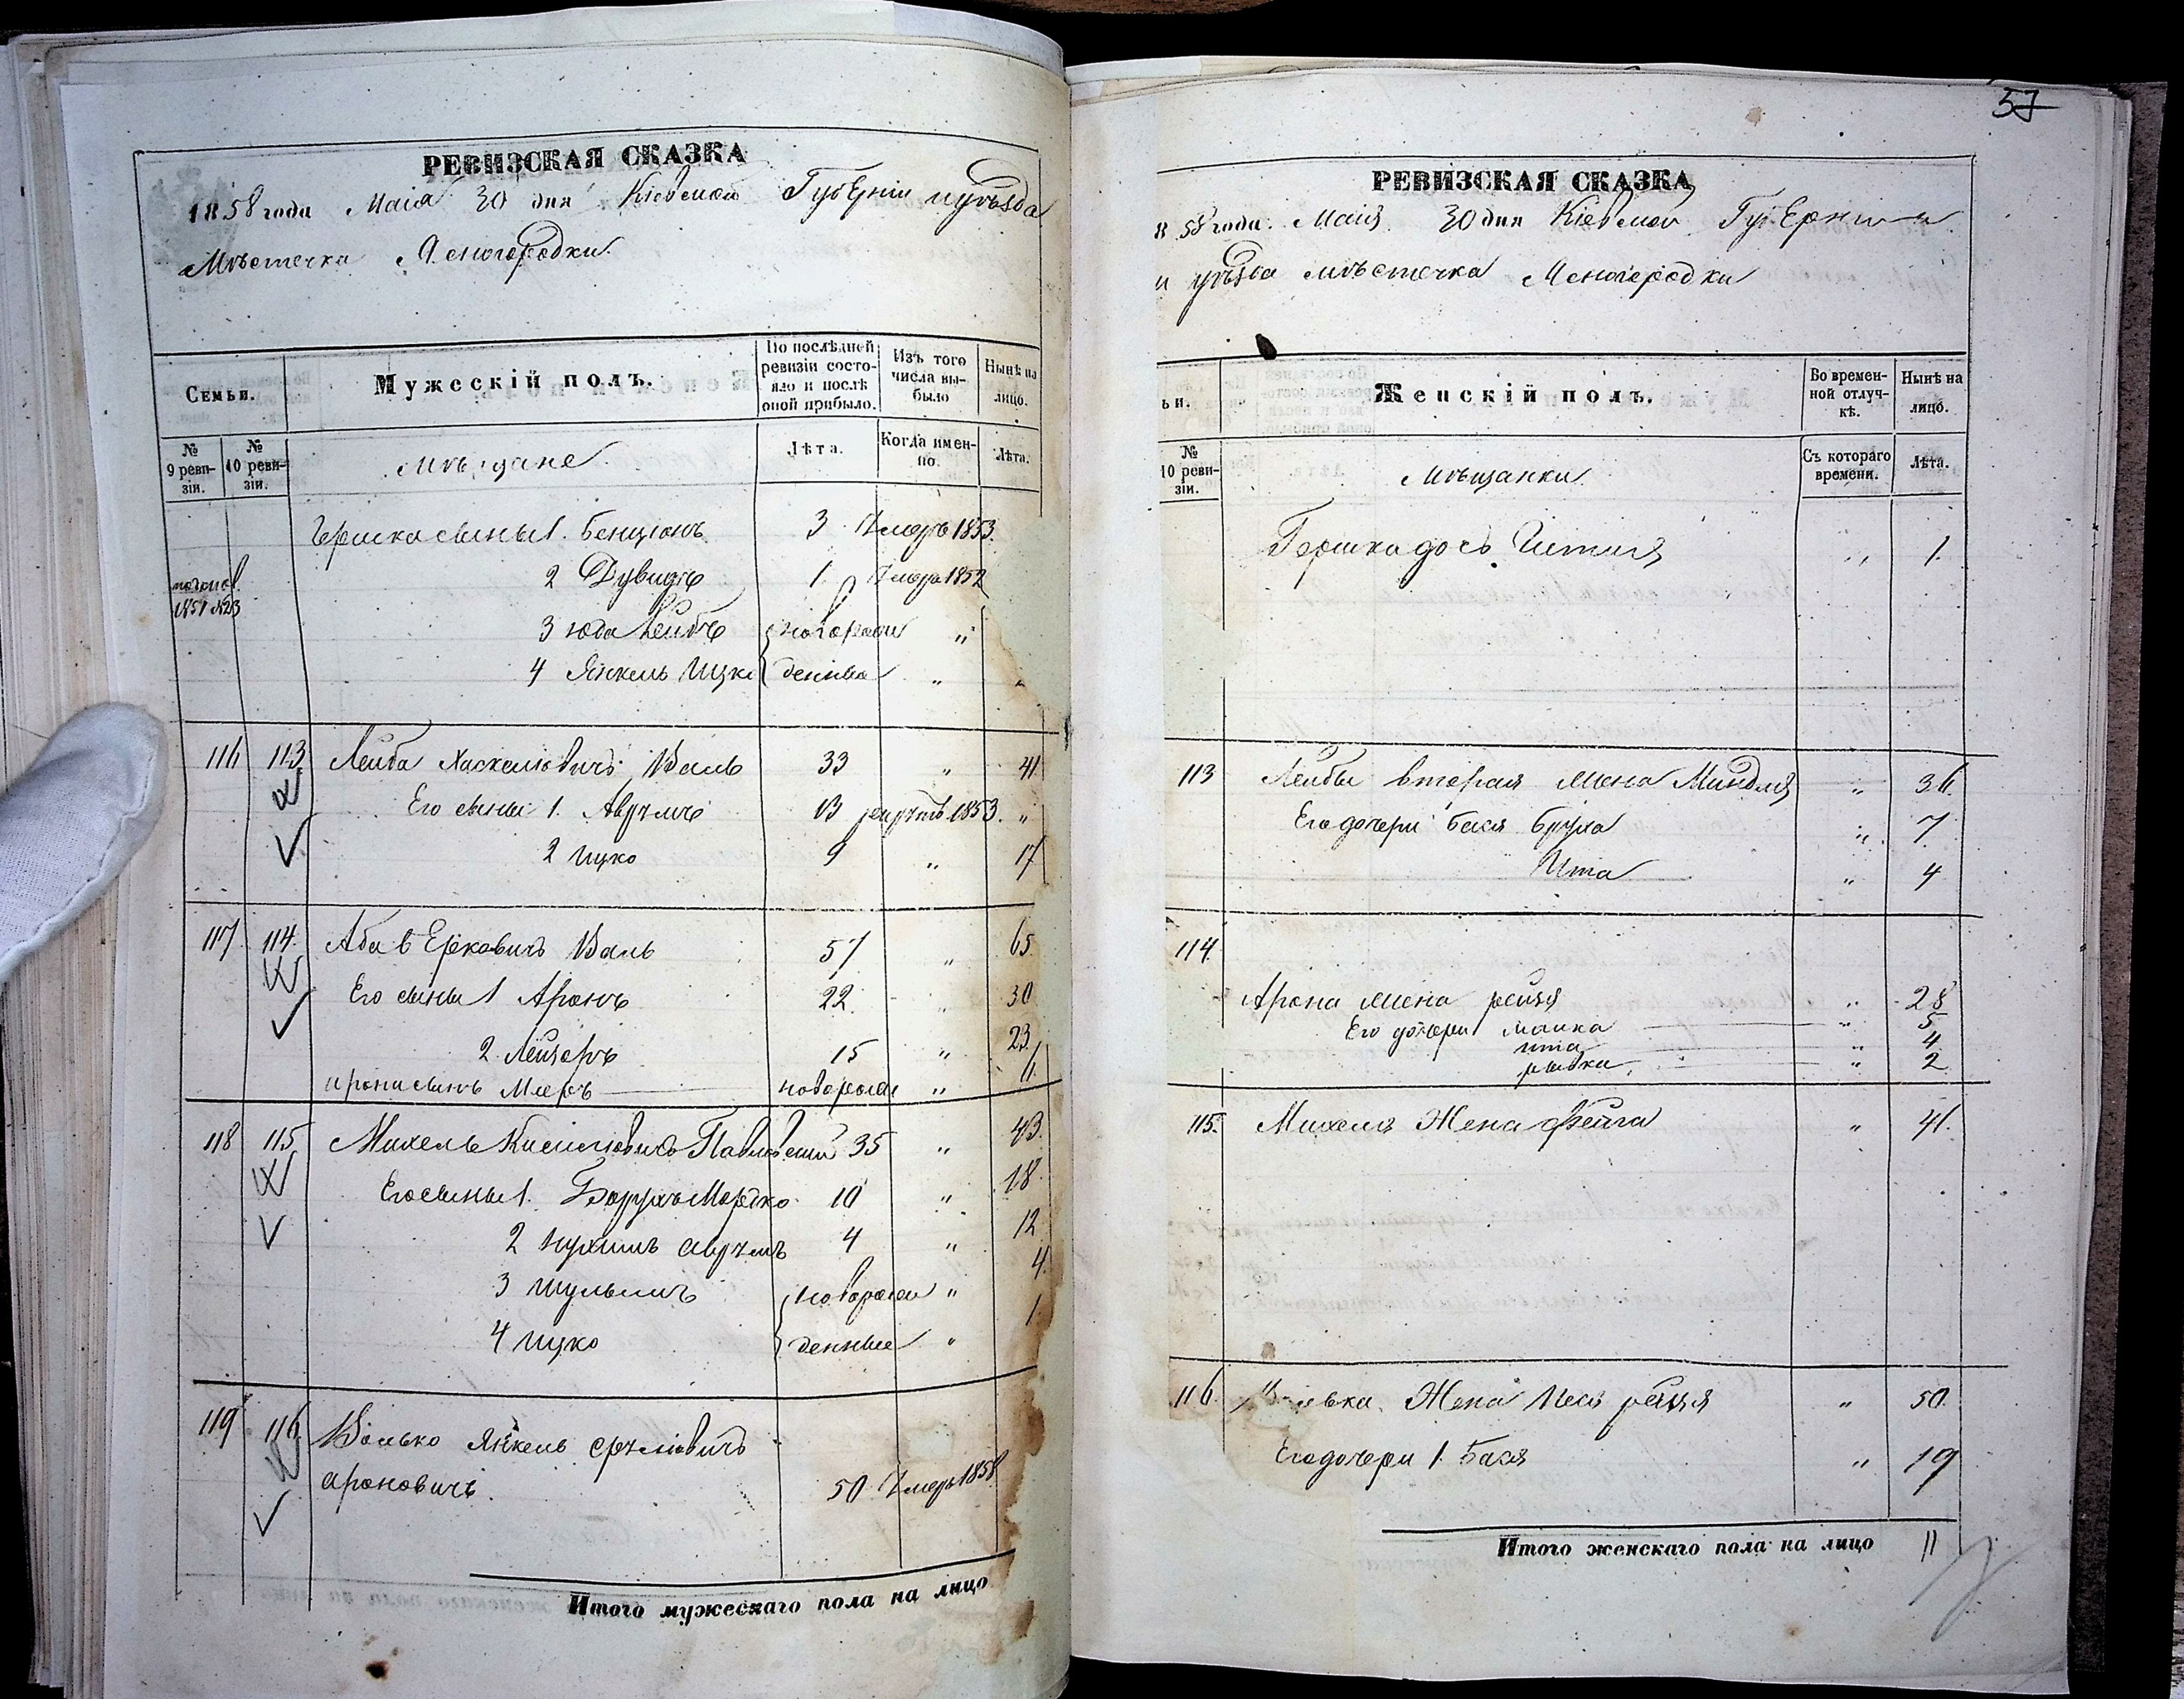 РЕВИЗСКАЯ СКАЗКА
1858 года Маія 30 дня Кіевской Губерніи и уѣзда
Мѣстечка Ясногородки.
Семьи.
Мужескій полъ.
По послѣдней ревизіи состояло и послѣ оной прибыло.
Изъ того числа выбыло
Нынѣ на лицо.
№ 9 ревизіи.
№ 10 ревизіи.
Мѣщане.
Лѣта.
Когда именно.
Лѣта.
Гершка сыны 1. Бенціонъ 3 Умеръ 1853.
2 Дувидъ 1. Умеръ 1852
3 Юда Лейбъ новорож „
4 Янкель Ицко денные „ „
116 113 Лейба Хаскелювичъ Валь 33 „ 41
Его сыны 1. Аврумъ 13 рекрутъ 1853. „
2 Ицко 9 „ 17
117 114 Аба Берковичъ Валь 57 „ 65
Его сыны 1 Аронъ 22 „ 30
2. Лейзеръ 15 „ 23
Арона сынъ Мееръ новорожд „
118 115 Михель Кисилювичъ Павловскій 35 „ 43
Его сыны 1. Борухъ Мордко 10 „ 18
2 Нухимъ Аврумъ 4 „ 12
3 Шулимъ новорож „ 4
4 Ицко денные „ 1
119 116 Волько Янкель Срулювичъ
Ароновичъ. 50 Умеръ 1858
Итого мужескаго пола на лицо
57
РЕВИЗСКАЯ СКАЗКА
858 года. Маія 30 дня Кіевской Губерніи
и уѣзда мѣстечка Ясногородки
ьи.
Женскій полъ.
Во временной отлучкѣ.
Нынѣ на лицо.
№ 10 ревизіи.
Мѣщанки.
Съ котораго времени.
Лѣта.
Гершка дочь „ 1.
113 Лейбы вторая жена Миндля „ 36.
Его дочери Бася Бруха „ 7
Ита „ 4
114
Арона жена Рейзя „ 28
Его дочери Малка „ 5
Ита „ 4
Рывка „ 2
115. Михеля Жена Фейга „ 41.
116. Жена Песя Рейзя „ 50.
Его дочери 1. Бася „ 19
Итого женскаго пола на лицо 11